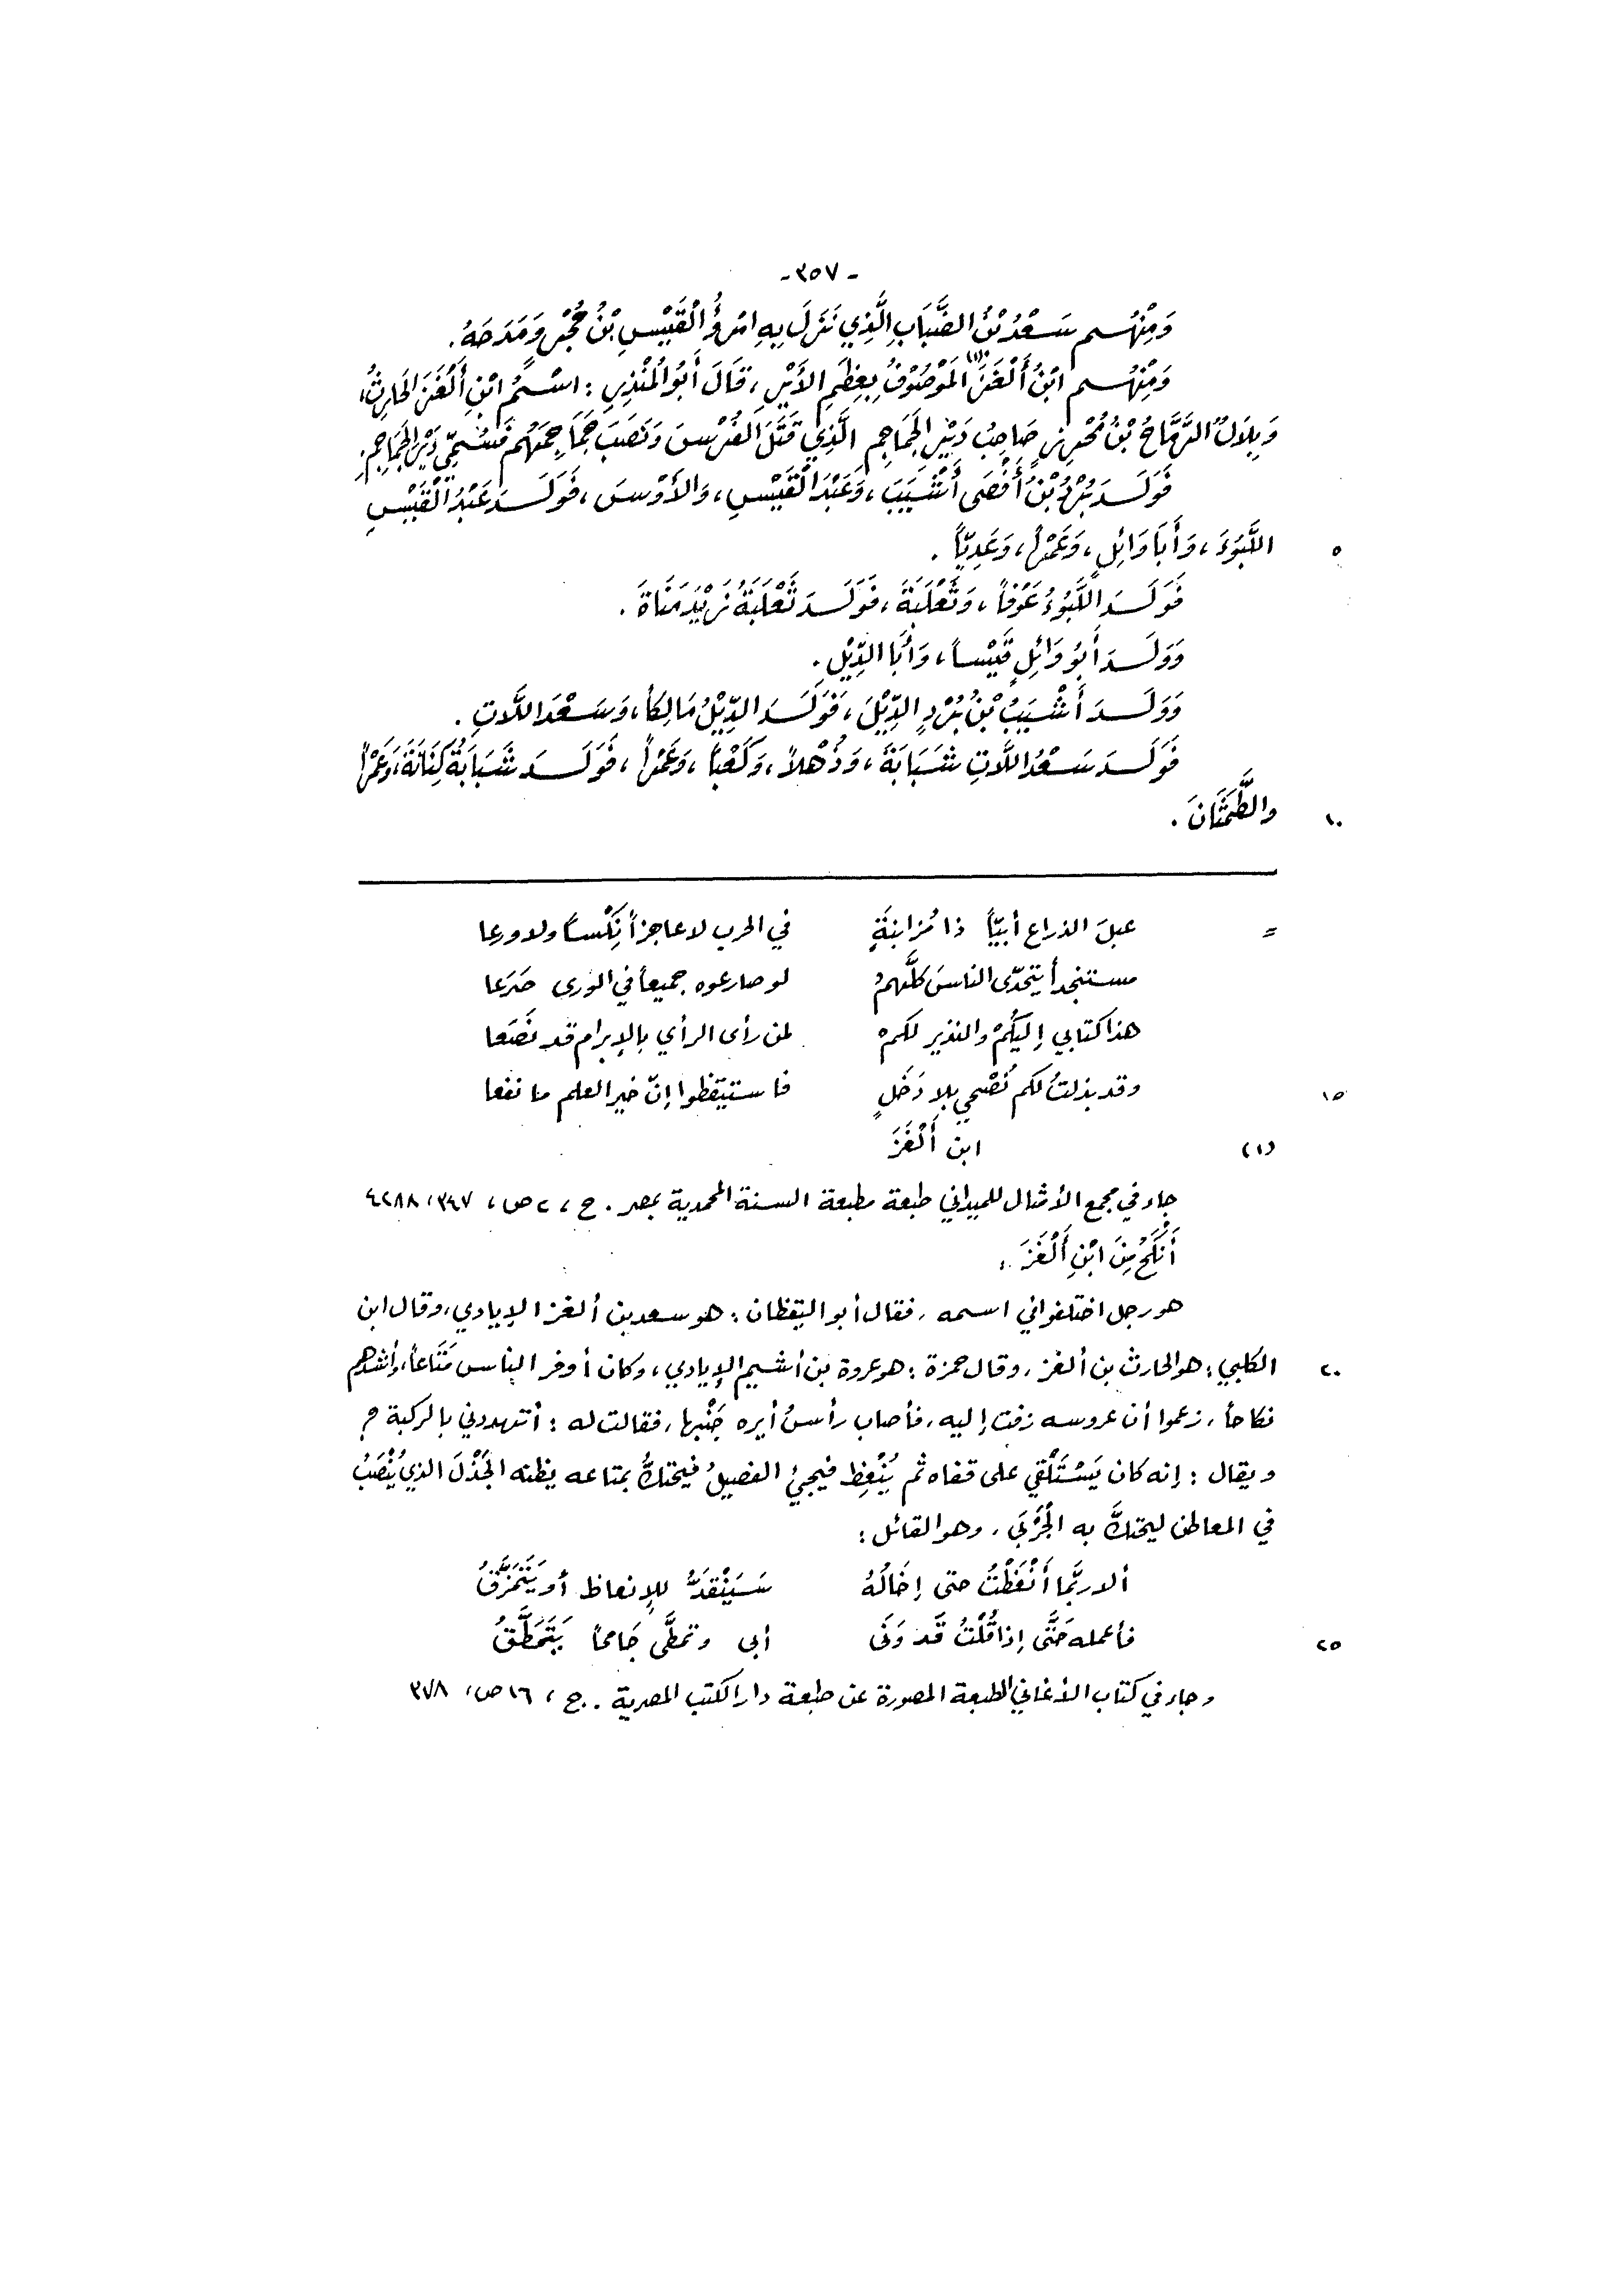 -٣٥٧-
وَمِنْهُم سَعْدُ بْنُ الضَّبَابِ الَّذِي نَزَلَ بِهِ امْرُؤُ الْقَيْسِ بْنُ حُجْرٍ وَمَدَحَهُ.
وَمِنْهُم ابْنُ أَلْغَزَ (١) المَوْصُوفُ بِعِظَمِ الأَيْرِ، قَالَ أَبُو المُنْذِرِ: اسْمُ ابْنِ أَلْغَزَ الحَارِثُ،
وَبِلَالٌ الرَّمَّاحُ بْنُ مُحْرِزٍ صَاحِبُ دَيْرِ الجَمَاجِمِ الَّذِي قَتَلَ الفُرْسَ وَنَصَبَ جَمَاجِمَهُم فَسُمِّيَ دَيْرَ الجَمَاجِمِ.
فَوَلَدَ بُرْدُ بْنُ أَفْصَى أَشْيَبَ، وَعَبْدَ الْقَيْسِ، وَالأَوْسَ، فَوَلَدَ عَبْدُ الْقَيْسِ
٥ اللَّبُوءَ، وَأَبَا وَائِلٍ، وَعَمْرًا، وَعَدِيًّا.
فَوَلَدَ اللَّبُوءُ عَوْفًا، وَثَعْلَبَةَ، فَوَلَدَ ثَعْلَبَةُ زَيْدَ مَنَاةَ.
وَوَلَدَ أَبُو وَائِلٍ قَيْسًا، وَأَبَا الدِّيْلِ.
وَوَلَدَ أَشْيَبُ بْنُ بُرْدٍ الدِّيْلَ، فَوَلَدَ الدِّيْلُ مَالِكًا، وَسَعْدَ اللَّاتِ.
فَوَلَدَ سَعْدُ اللَّاتِ شَبَابَةَ، وَذُهْلًا، وَكَعْبًا، وَعَمْرًا، فَوَلَدَ شَبَابَةُ كِنَانَةَ، وَعَمْرًا
١٠ والطَّمَثَانَ.
= عبلَ الذراع أبيّاً ذا مُزابنَةٍ في الحرب لا عاجزاً نِكْساً ولا ورعا
مستنجداً يتحدّى الناسَ كلَّهمُ لو صارعوه جميعاً في الورى صَرَعا
هذا كتابي إليكُمْ والنذير لكمْ لمن رأى الرأي بالإبرام قد نَصَعا
١٥ وقد بذلتُ لكم نُصْحي بلا دَخَلٍ فاستيقظوا إنّ خير العلم ما نفعا
(١) ابن أَلْغَزَ
جاء في مجمع الأمثال للميداني طبعة مطبعة السنة المحمدية بمصر. ج، ٢ ص، ٣٤٧، ٤٢٨٨
أَنْكَحُ مِنَ ابْنِ أَلْغَزَ.
هو رجل اختلفوا في اسمه، فقال أبو اليقظان: هو سعد بن ألغز الإيادي، وقال ابن
٢٠ الكلبي: هو الحارث بن ألغز، وقال حمزة: هو عروة بن أشيم الإيادي، وكان أوفر الناس مَتَاعاً، وأشدهم
نكاحاً، زعموا أن عروسه زفت إليه، فأصاب رأسُ أيره جَنْبها، فقالت له: أتهددني بالركبة ؟
ويقال: إنه كان يَسْتَلْقي على قفاه ثم يُنْعِظ فيجيءُ الفصيلُ فيحتكُّ بمتاعه يظنه الجَذْلَ الذي يُنْصَبُ
في المعاطن ليحتكَّ به الجَرْبَى، وهو القائل:
ألا ربَّما أَنْعَظْتُ حتى إخَالُهُ سَيَنْقَدُّ للإنعاظ أو يَتَمَزَّقُ
٢٥ فأعمله حَتَّى إذا قُلْتُ قَد وَنَى أبى وتمطَّى جَامحاً يَتَمَطَّقُ
وجاء في كتاب الأغاني الطبعة المصورة عن طبعة دار الكتب المصرية. ج، ١٦ ص، ٣٧٨